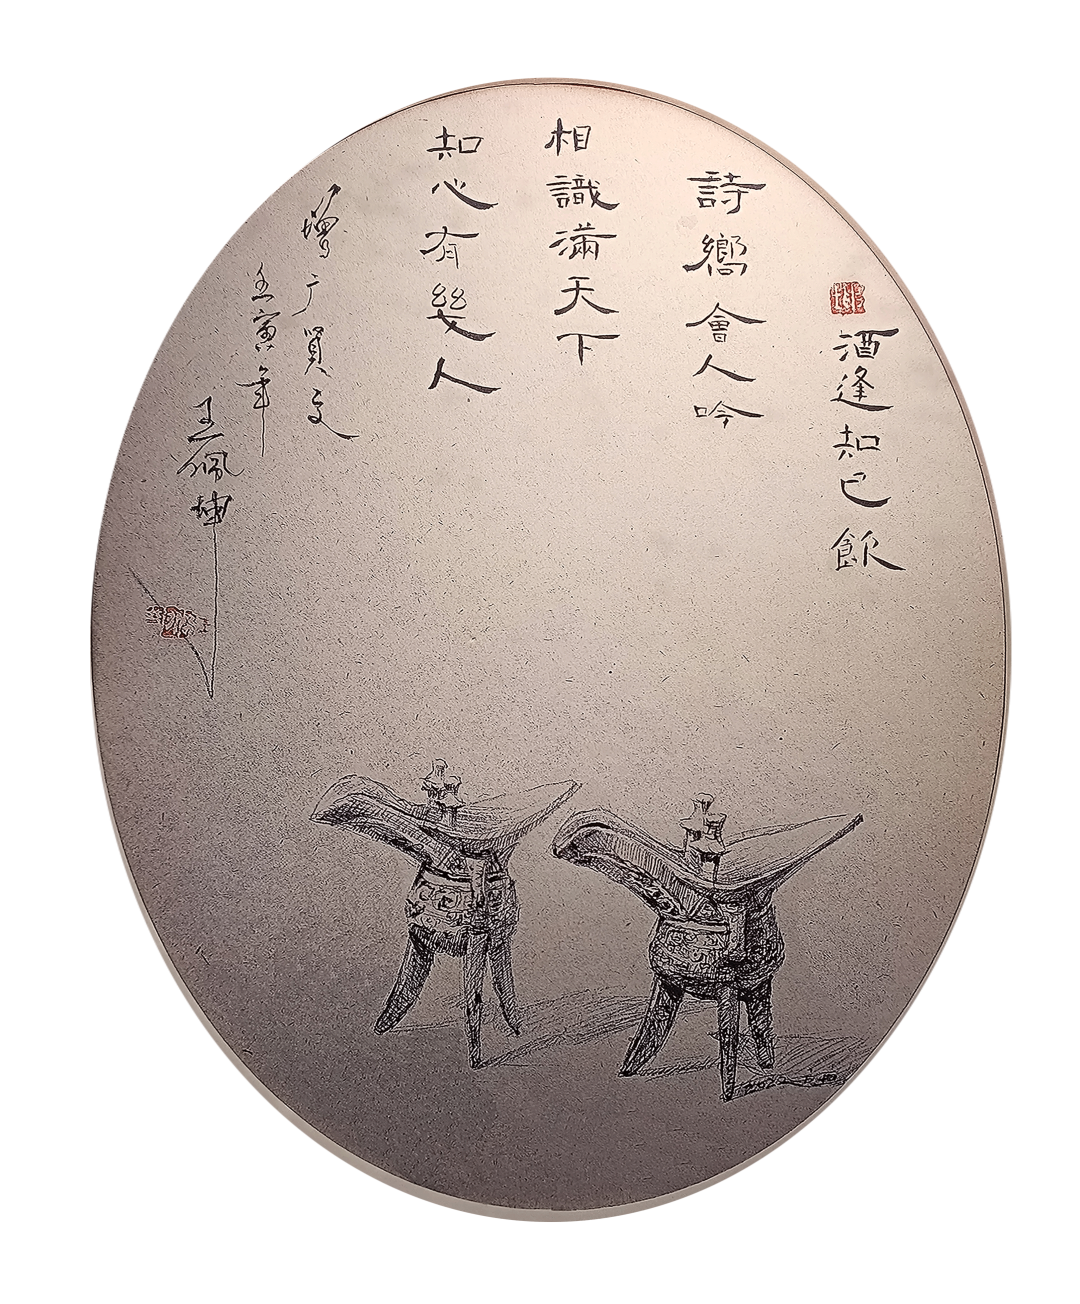 酒逢知己飲
詩嚮會人吟
相識滿天下
知心有幾人
增广賢文
壬寅年
王佩坤